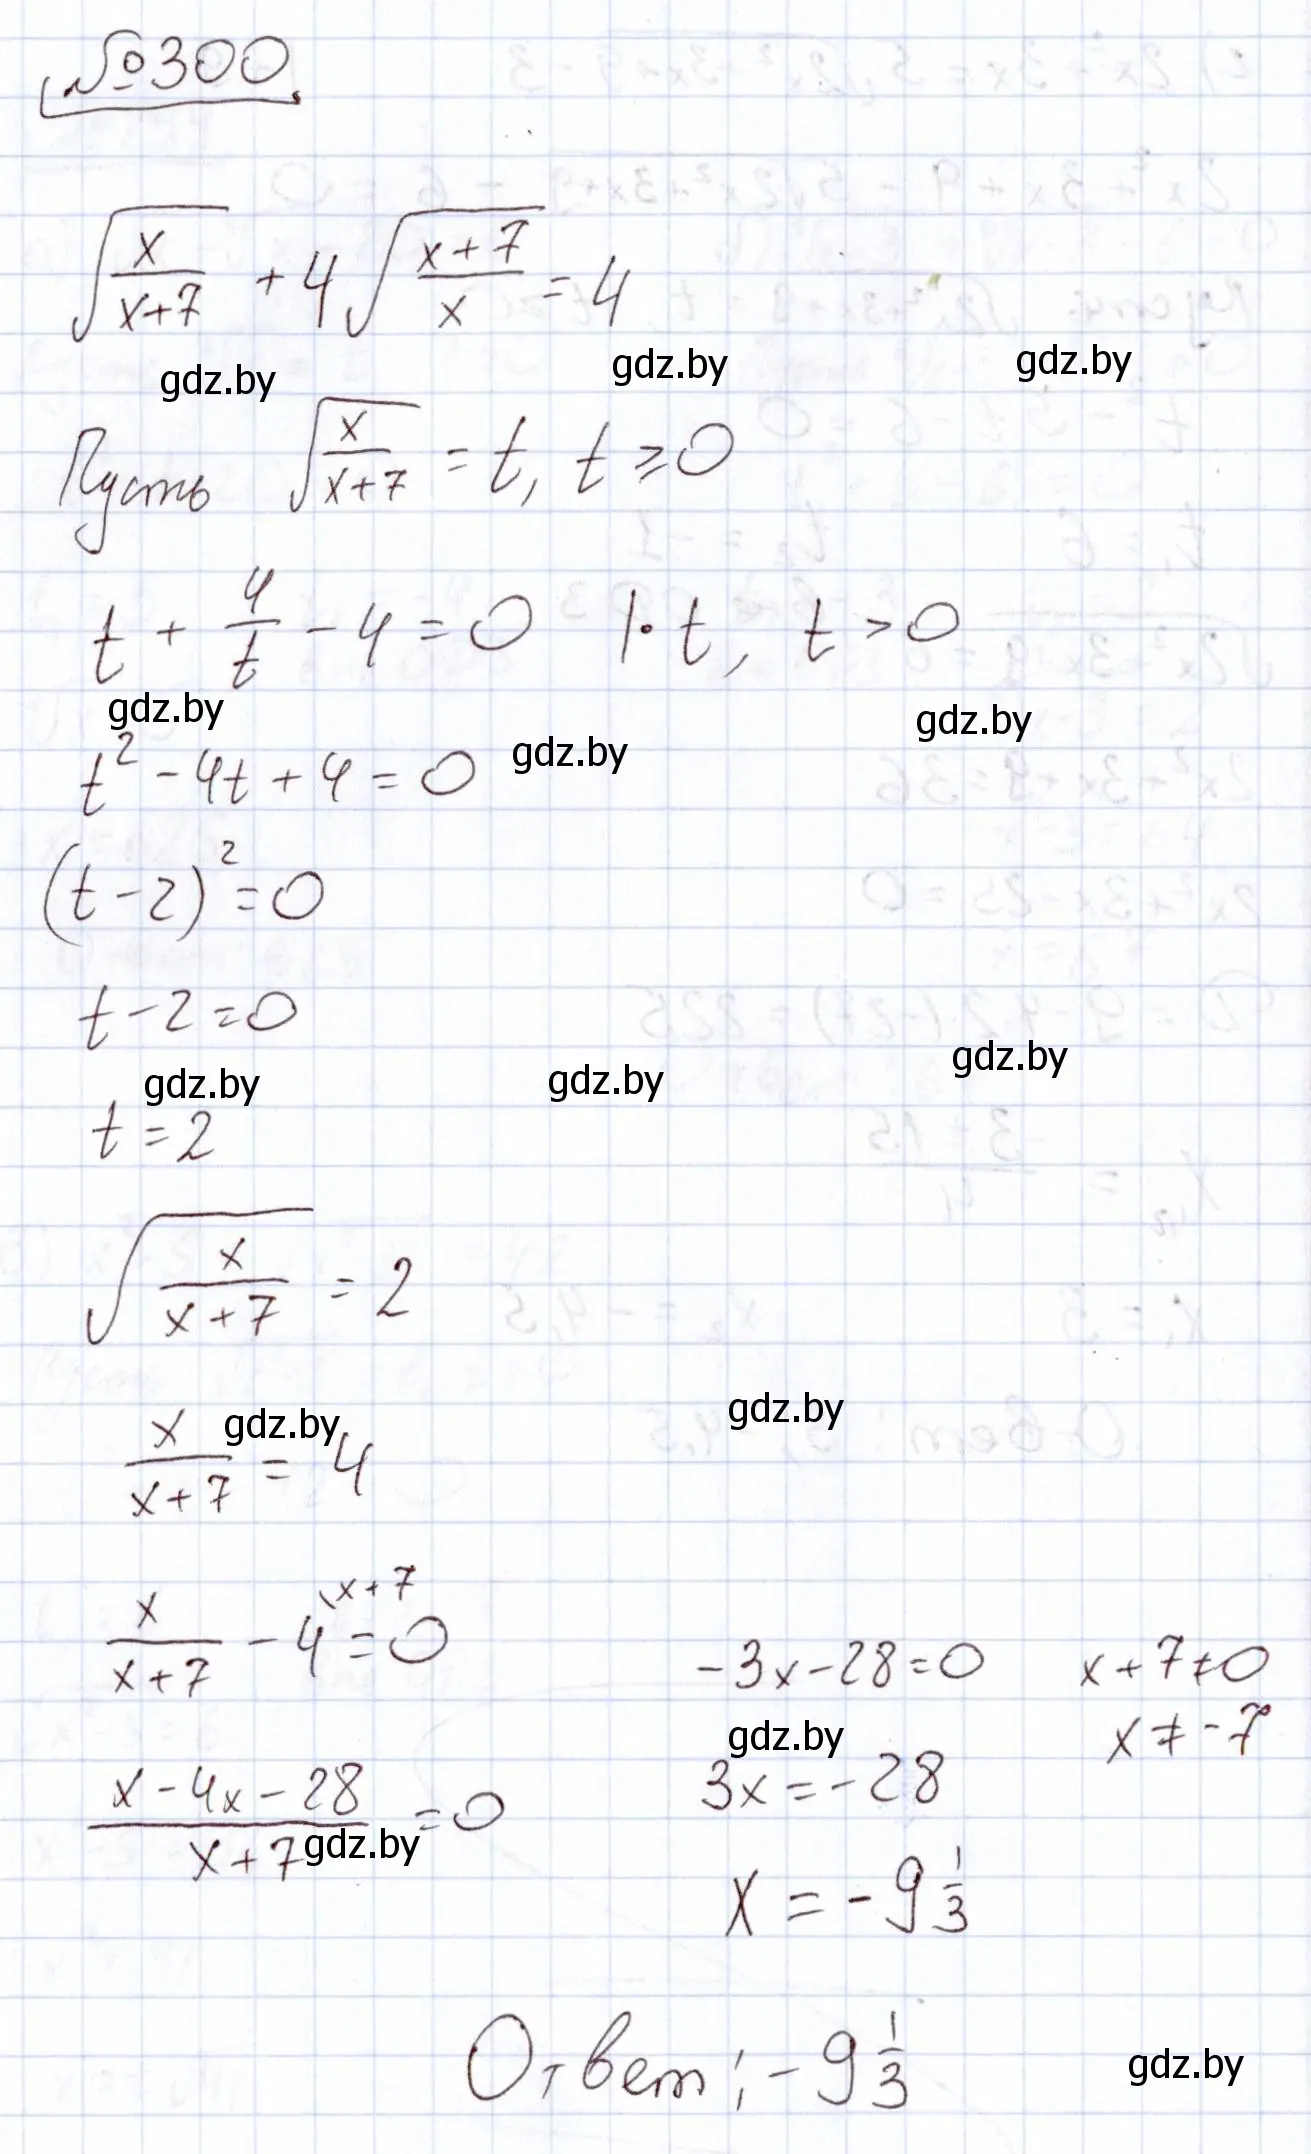 №300
√(x/(x+7)) + 4√((x+7)/x) = 4
gdz.by gdz.by gdz.by
Пусть √(x/(x+7)) = t, t ≥ 0
t + 4/t - 4 = 0 |· t, t > 0
gdz.by gdz.by gdz.by
t² - 4t + 4 = 0
(t - 2)² = 0
t - 2 = 0
gdz.by gdz.by gdz.by
t = 2
√(x/(x+7)) = 2
gdz.by gdz.by
x/(x+7) = 4
x/(x+7) - 4^(\x+7) = 0
-3x - 28 = 0 x + 7 ≠ 0
gdz.by x ≠ -7
(x - 4x - 28)/(x+7) = 0 3x = -28
gdz.by
x = -9 1/3
Ответ: -9 1/3 gdz.by